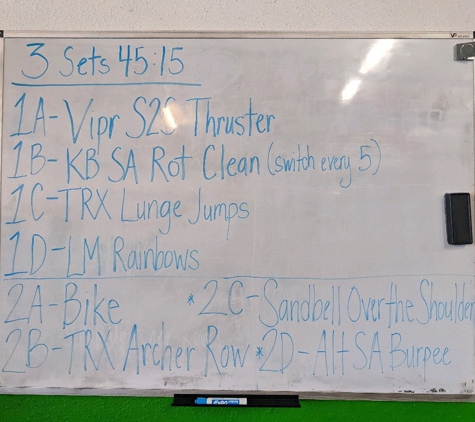 3 Sets 45:15
1A-Vipr S2S Thruster
1B-KB SA Rot Clean (switch every 5)
1C-TRX Lunge Jumps
1D-LM Rainbows
2A-Bike
*2C-Sandbell Over the Shoulder
2B-TRX Archer Row
*2D-Alt SA Burpee